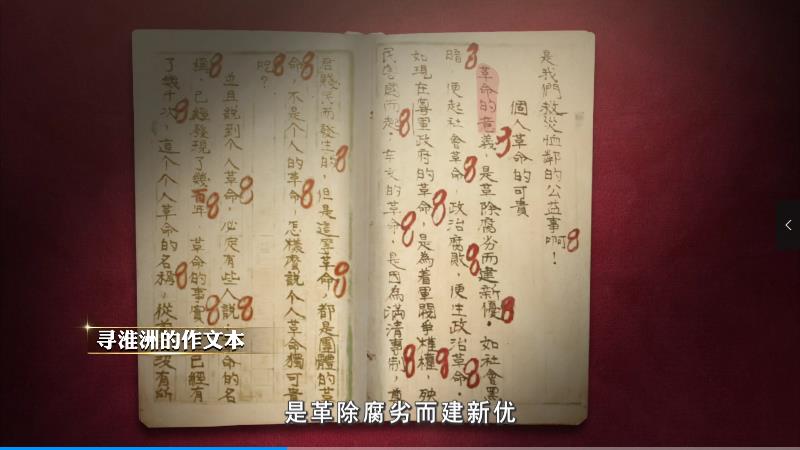 是我們救災恤鄰的公益事啊！
個人革命的可貴
革命的意義，是革除腐劣而建新優。如社會黑
暗，便起社會革命，政治腐敗，便生政治革命。
如現在軍政府的革命，是為着軍閥爭權，殃
民而起。的革命，是因為滿清專制，
君賤民而發生的，但是這等革命，都是團體的革
命，不是个人的革命，怎樣麼說个人革命獨可貴
呢？
並且說到个人革命，必定有些人說，命的名
稱，已經發現了幾百年，革命的事實，已經有
了幾千次，這个个人革命的名稱，從沒有所
寻淮洲的作文本
是革除腐劣而建新优